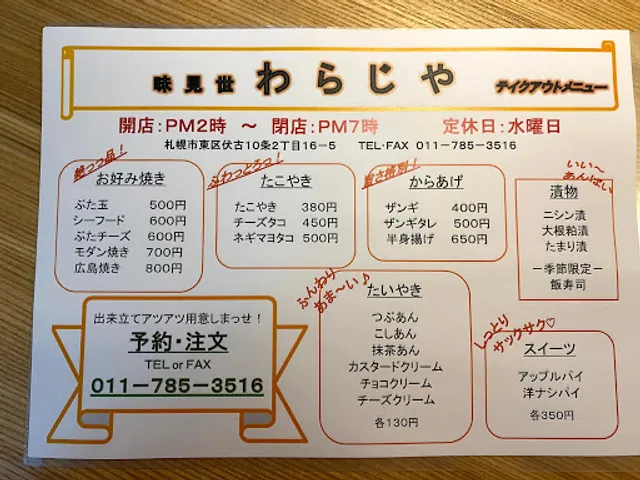 味見世 わらじや テイクアウトメニュー
開店:PM2時 ～ 閉店:PM7時 定休日:水曜日
札幌市東区伏古10条2丁目16-5 TEL・FAX 011-785-3516
お好み焼き
ぶた玉 500円
シーフード 600円
ぶたチーズ 600円
モダン焼き 700円
広島焼き 800円
ふわっとろっ!
たこやき
たこやき 380円
チーズタコ 450円
ネギマヨタコ 500円
旨さ格別!
からあげ
ザンギ 400円
ザンギタレ 500円
半身揚げ 650円
いい～
あんばい
漬物
ニシン漬
大根粕漬
たまり漬
ー季節限定ー
飯寿司
出来立てアツアツ用意しまっせ!
予約・注文
TEL or FAX
011-785-3516
ふんわり
あま～い♪
たいやき
つぶあん
こしあん
抹茶あん
カスタードクリーム
チョコクリーム
チーズクリーム
各130円
しっとり
サックサク♡
スイーツ
アップルパイ
洋ナシパイ
各350円